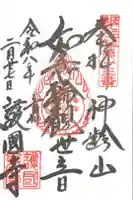 奉拝 神齢山
如意輪観世音
令和八年
二月七日 護國寺